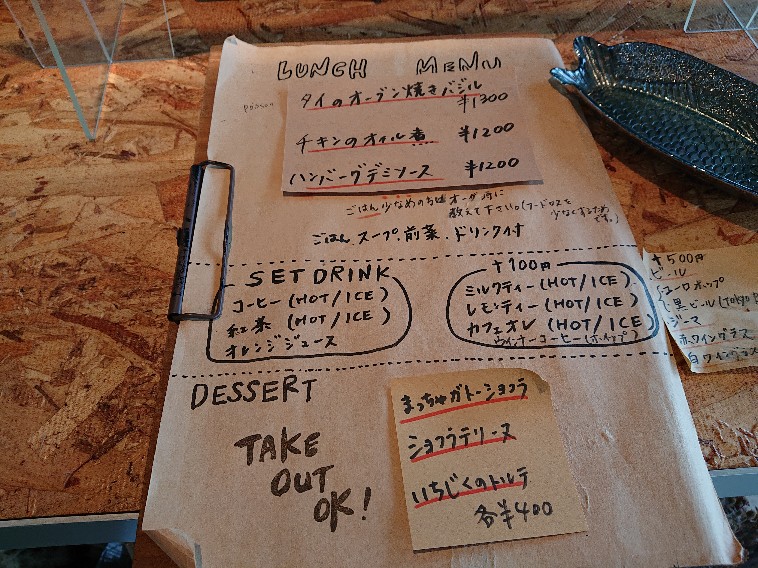 LUNCH MENU
タイのオーブン焼きバジル
¥1300
チキンのオイル煮 ¥1200
ハンバーグデミソース ¥1200
ごはん少なめの方はオーダー時に
教えて下さい。(フードロスを
少なくするため
です。)
ごはん.スープ.前菜.ドリンク付
SET DRINK
コーヒー (HOT/ICE)
紅茶 (HOT/ICE)
オレンジジュース
+100円
ミルクティー (HOT/ICE)
レモンティー (HOT/ICE)
カフェオレ (HOT/ICE)
ウィンナーコーヒー(ホイップ)
+500円
ビール
ユーロホップ
黒ビール(Tokyo
ジーマ
赤ワイングラス
白ワイングラス
DESSERT
TAKE
OUT
OK!
まっちゃガトーショコラ
ショコラテリーヌ
いちじくのトルテ
各¥400